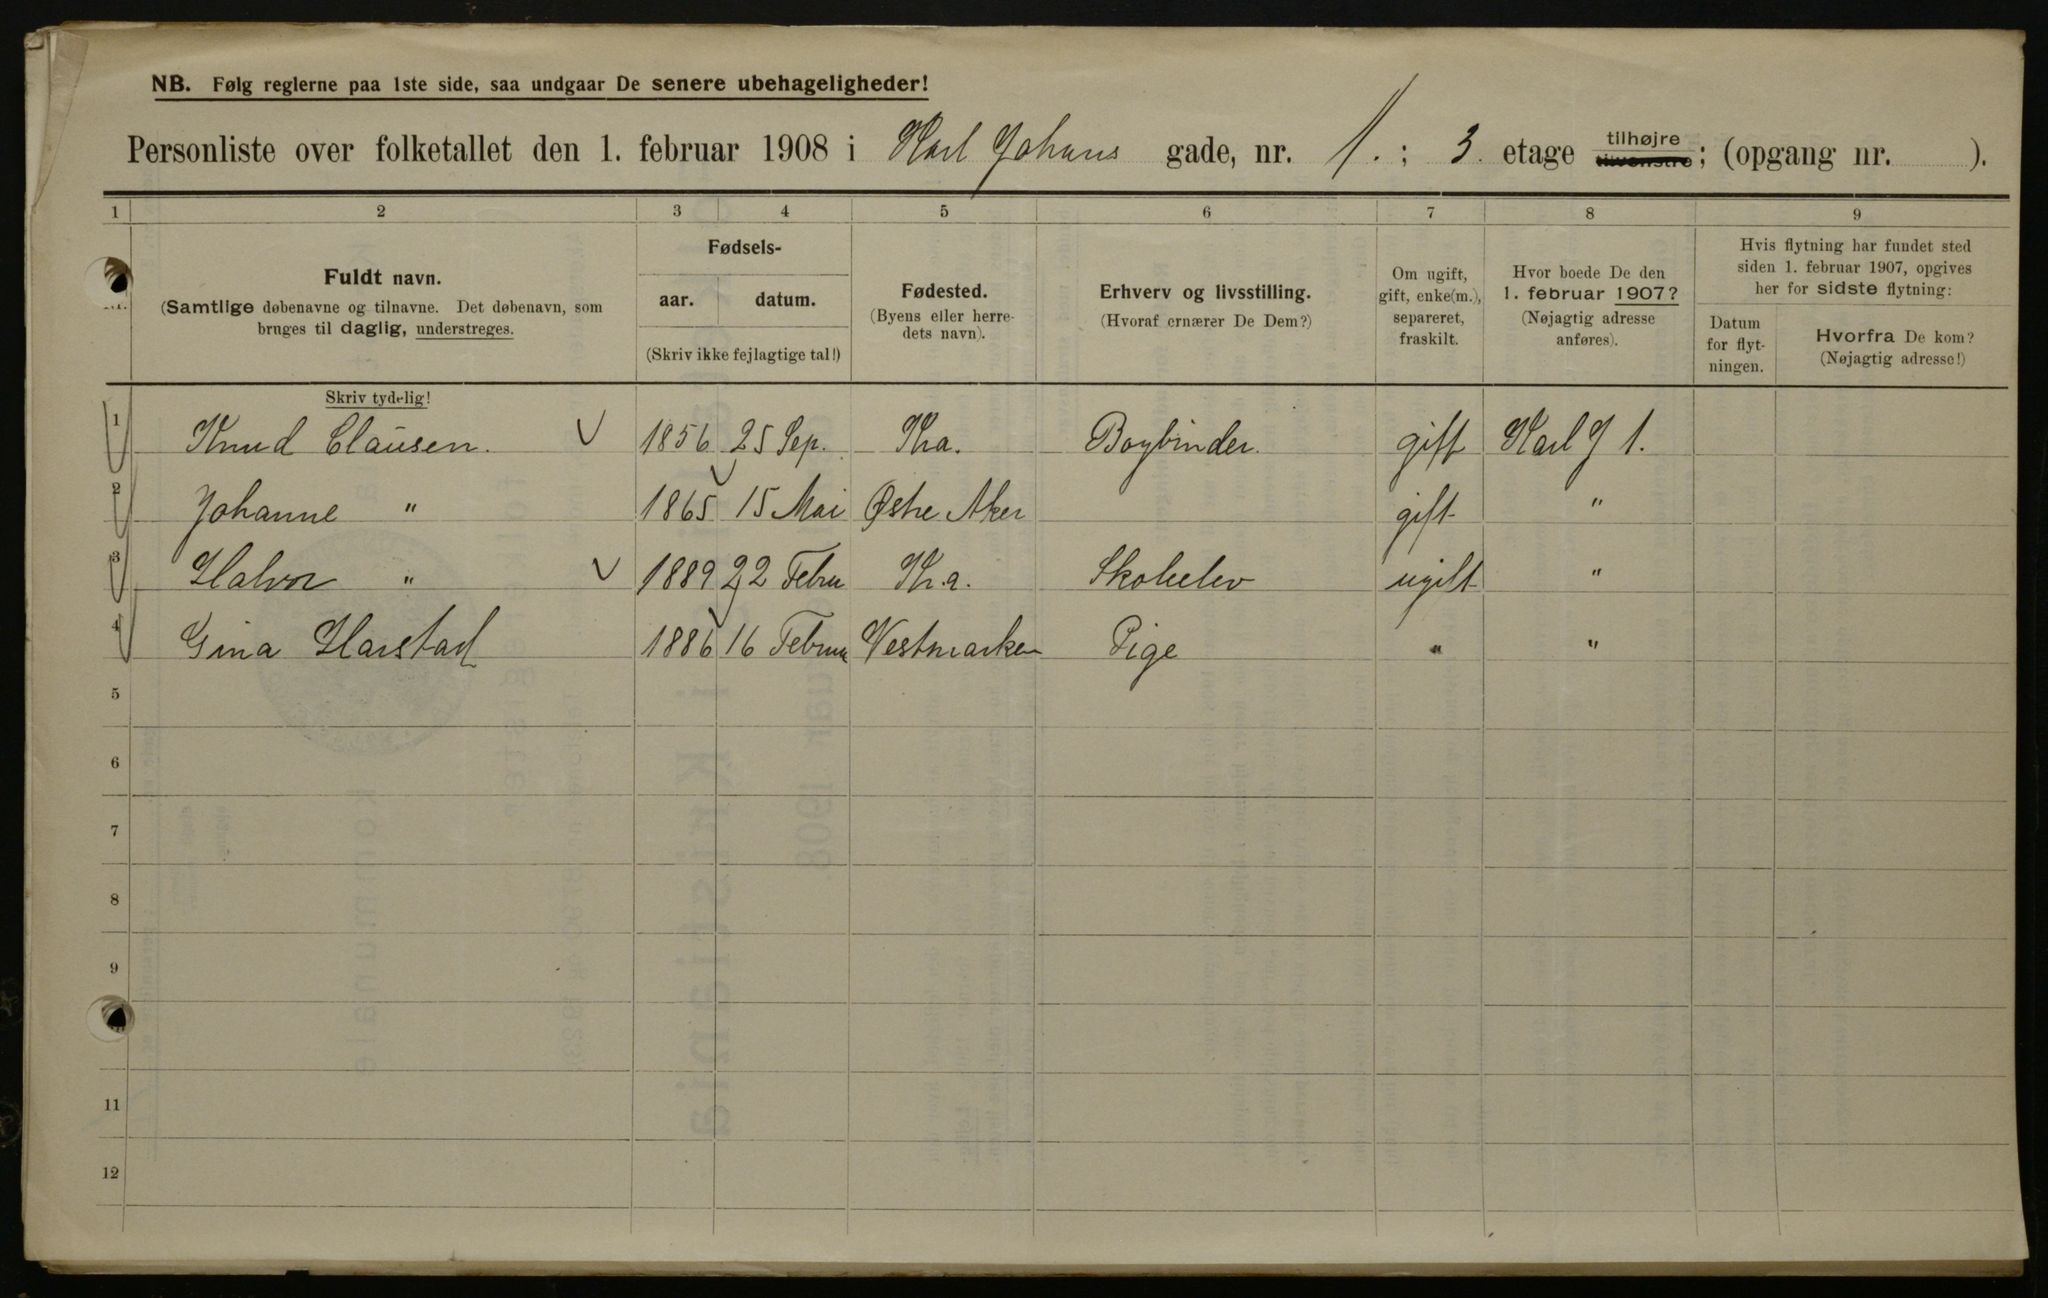 NB. Følg reglerne paa 1ste side, saa undgaar De senere ubehageligheder!
Personliste over folketallet den 1. februar 1908 i Karl Johans gade, nr. 1. ; 3. etage tilhøjre tilvenstre; (opgang nr. ).
1 2 3 4 5 6 7 8 9
Nr.
Fuldt navn.
(Samtlige døbenavne og tilnavne. Det døbenavn, som
bruges til daglig, understreges.
Fødsels-
aar. datum.
(Skriv ikke fejlagtige tal!)
Fødested.
(Byens eller herre-
dets navn).
Erhverv og livsstilling.
(Hvoraf ernærer De Dem?)
Om ugift,
gift, enke(m.),
separeret,
fraskilt.
Hvor boede De den
1. februar 1907?
(Nøjagtig adresse
anføres).
Hvis flytning har fundet sted
siden 1. februar 1907, opgives
her for sidste flytning:
Datum
for flyt-
ningen.
Hvorfra De kom?
(Nøjagtig adresse!)
Skriv tydelig!
1 Knud Clausen. 1856 25 Sep. Kra. Bogbinder. gift Karl J 1.
2 Johanne " 1865 15 Mai Østre Aker gift "
3 Halvor " 1889 22 Febru Kr.a. Skoleelev ugift "
4 Gina Harstad 1886 16 Februa Vestmarken Pige " "
5
6
7
8
9
11
12